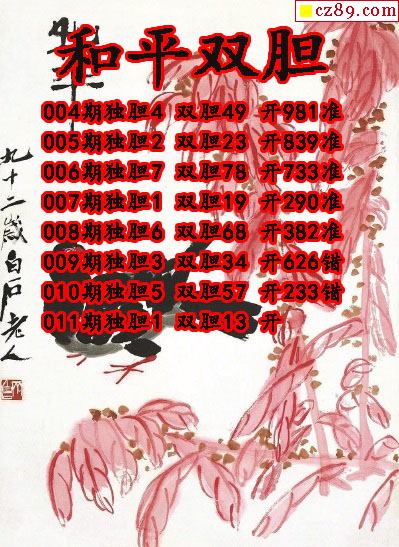 cz89.com
和平双胆
004期独胆4 双胆49 开981准
005期独胆2 双胆23 开839准
006期独胆7 双胆78 开733准
007期独胆1 双胆19 开290准
008期独胆6 双胆68 开382准
009期独胆3 双胆34 开626错
010期独胆5 双胆57 开233错
011期独胆1 双胆13 开
九十二岁白石老人